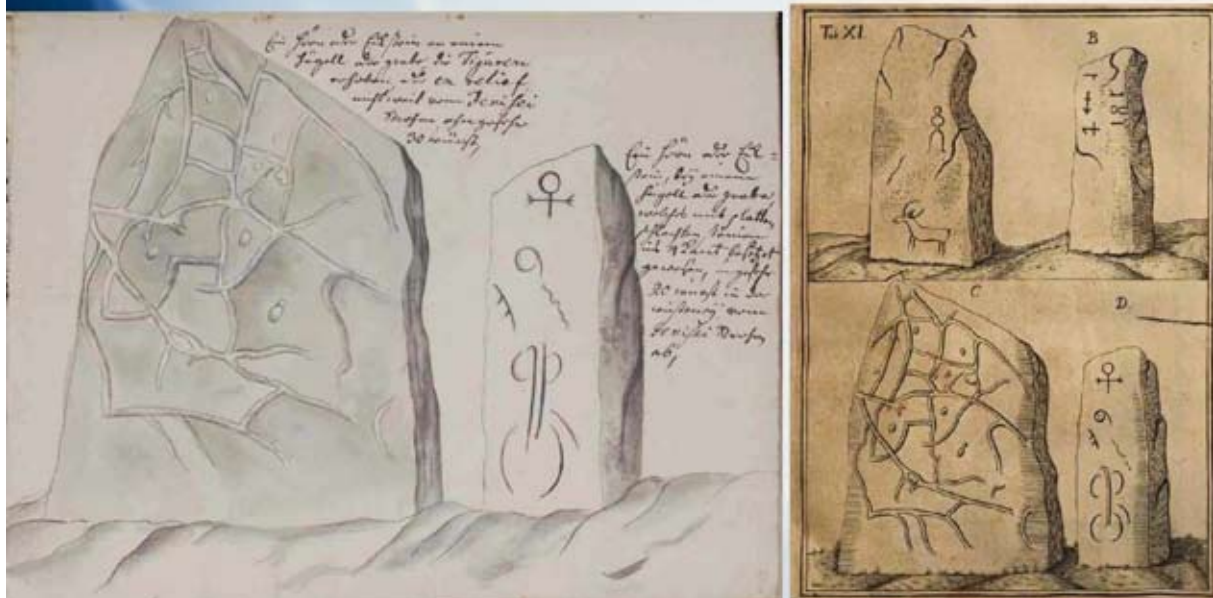 Ein Hörn oder Eckstein an einem
Hügell oder grabe die Figuren
erhoben oder en relief
nicht weit vom Jenisei
Strohm ohngefehr
30 würst,
Ein Hörn oder Eck=
stein, bey einem
Hügell oder grabe,
welches mit platten
steinen
ins 4kant besetzet
gewesen, ungefehr
20 würst in der
wüsteney vom
Jenisei Strohm
ab,
Tab XI.
A
B
C
D